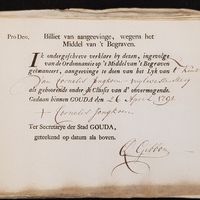 Pro Deo,
Billiet van aangeevinge, wegens het
Middel van 't Begraven.
Ik ondergeschreve verklare by dezen, ingevolge
van de Ordonnantie op 't Middel van 't Begraven
geëmaneert, aangevinge te doen van het Lyk van 't Kind
van Cornelis Jongkoen
als gehoorende onder de Classis van d' onvermogende.
Gedaan binnen GOUDA den 26 April 1792
+ Cornelis Jongkoen
Ter Secretarye der Stad GOUDA,
geteekend op datum als boven.